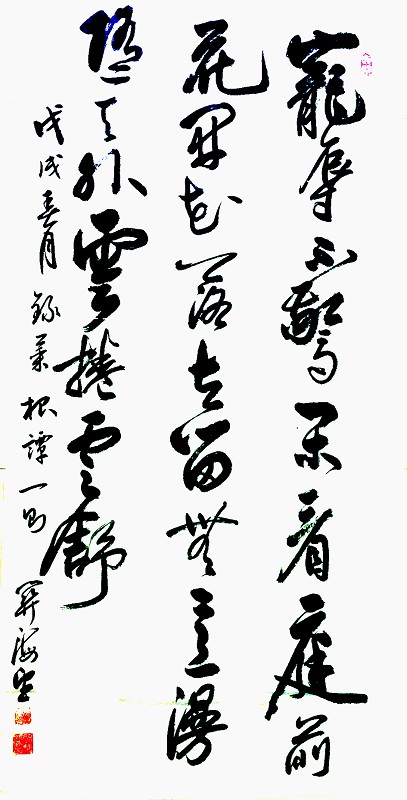 寵辱不驚閑看庭前
花開花落去留無意漫
隨天外雲捲雲舒
戊戌春月錄菜根譚一則